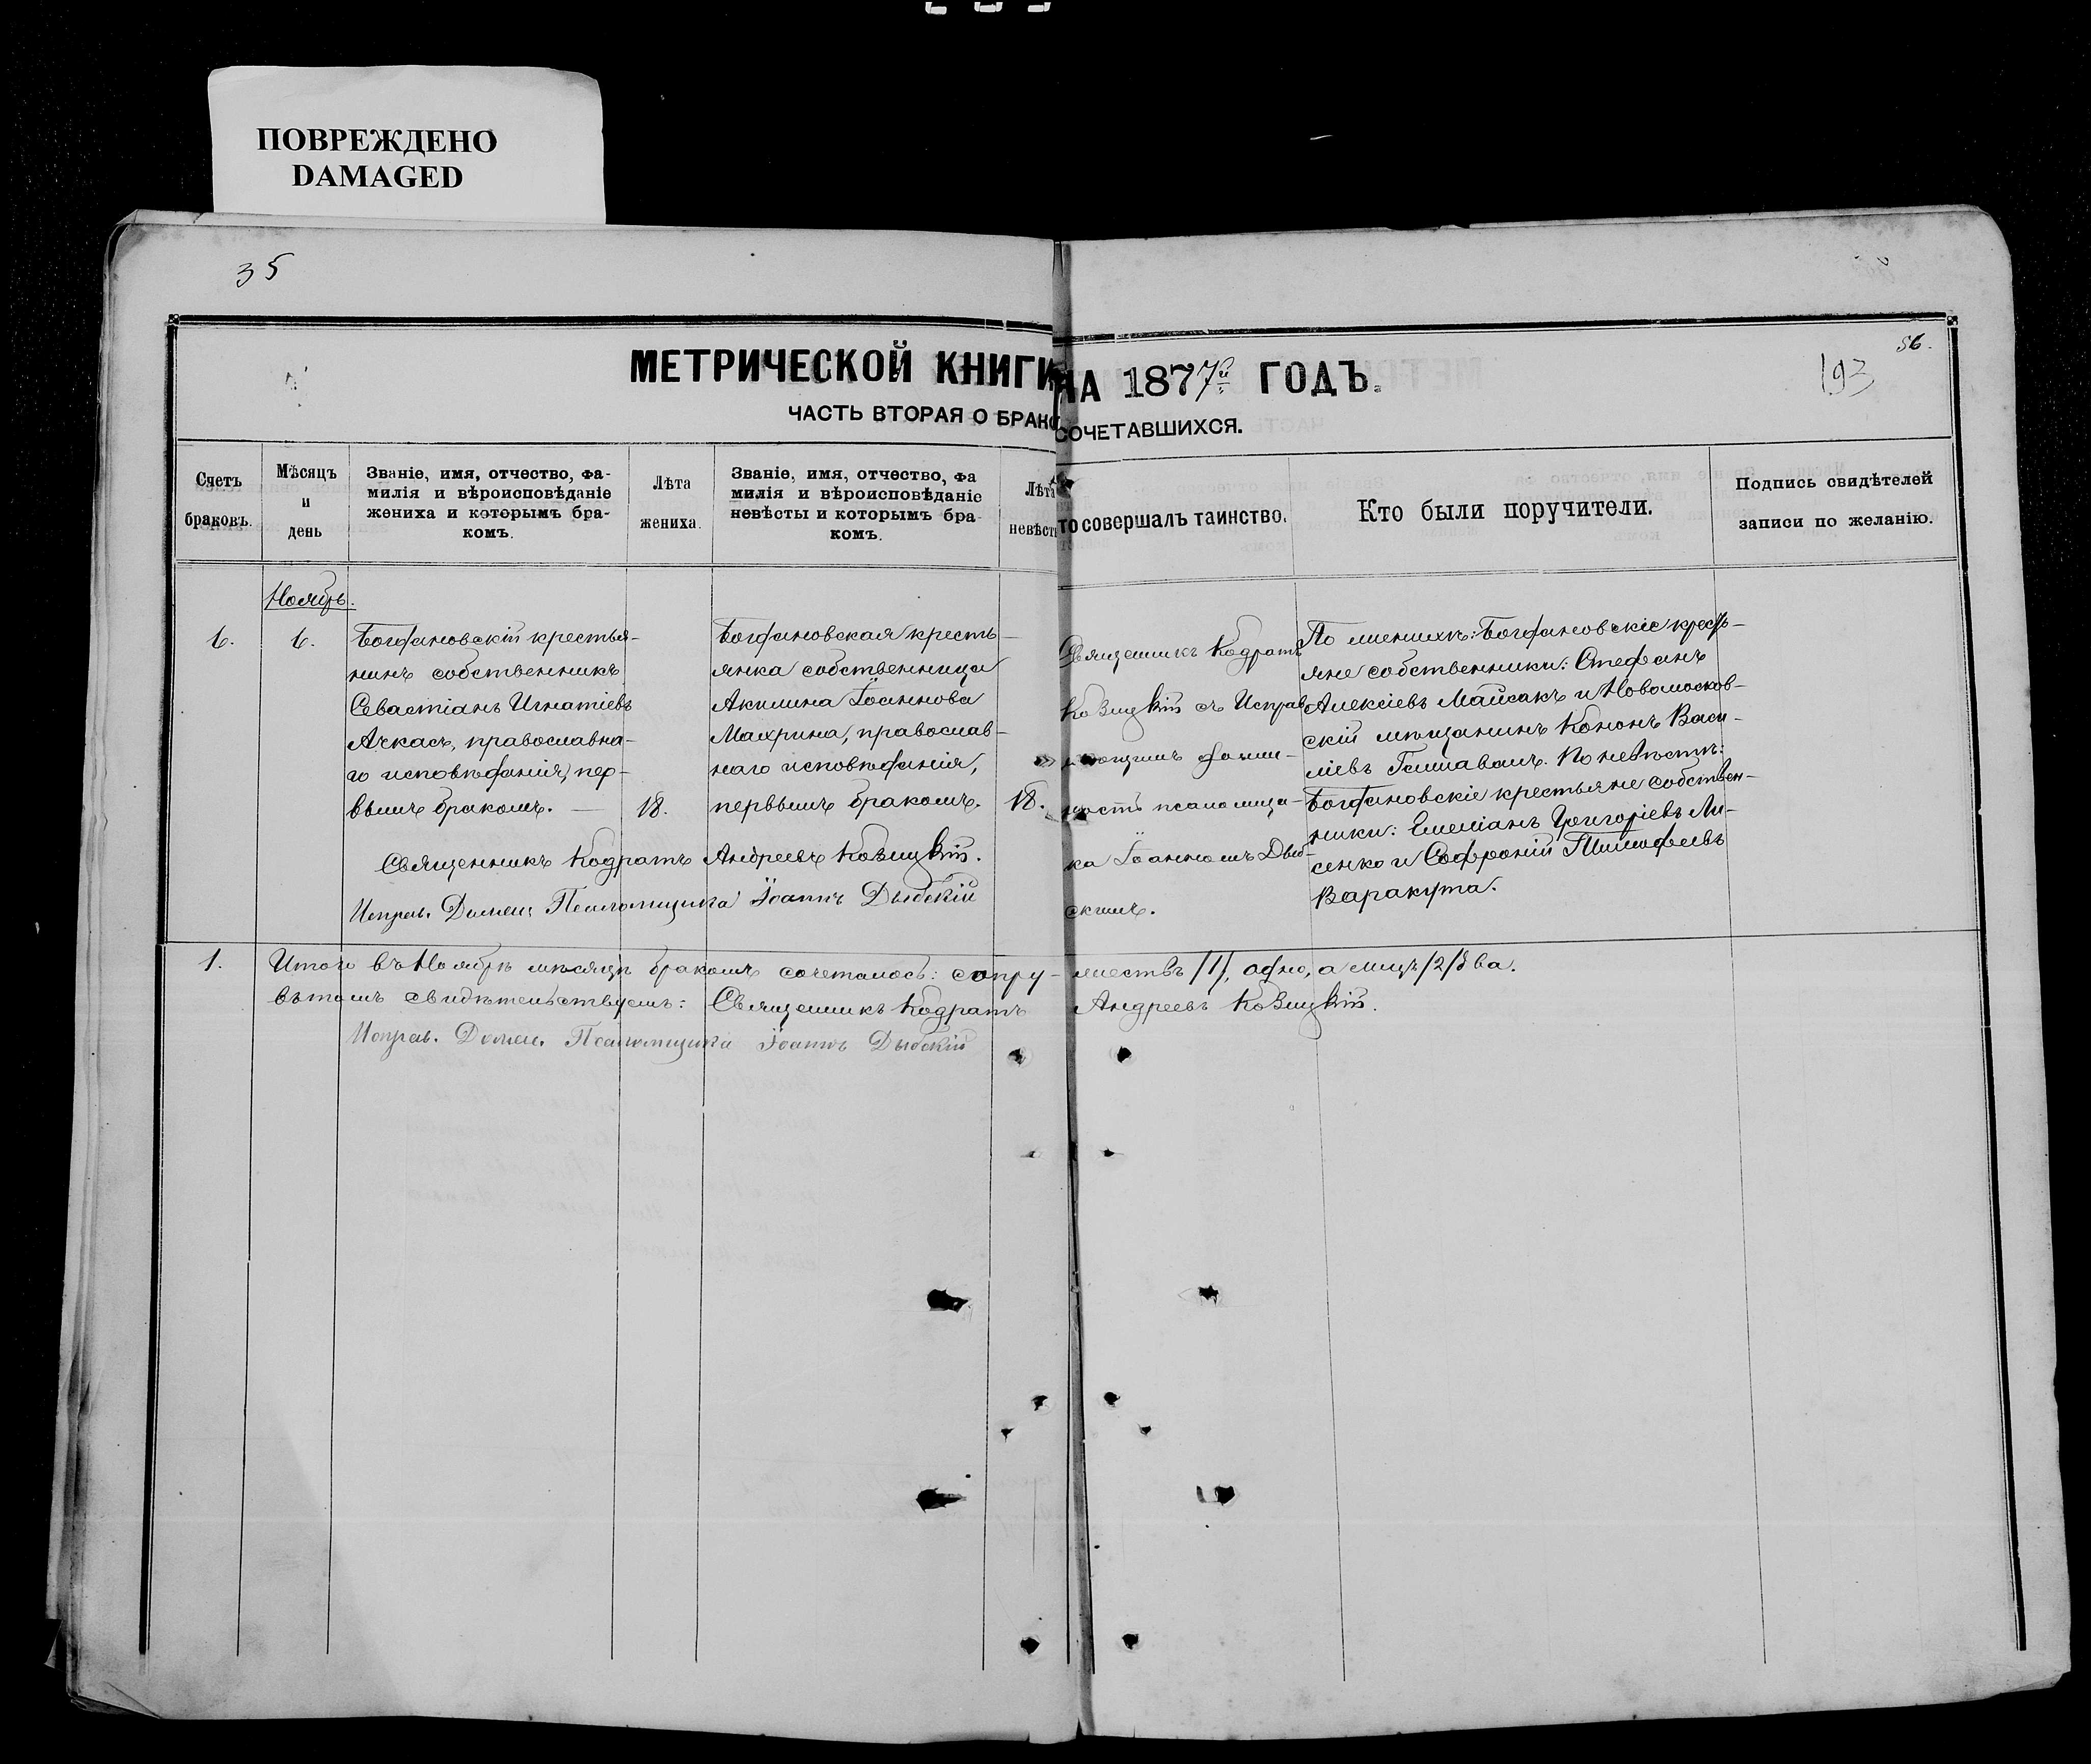 ПОВРЕЖДЕНО
DAMAGED
35
56.
193
МЕТРИЧЕСКОЙ КНИГИ НА 1877й ГОДЪ.
ЧАСТЬ ВТОРАЯ О БРАКОСОЧЕТАВШИХСЯ.
Счетъ
браковъ.
Мѣсяцъ
и
день
Званіе, имя, отчество, фа-
милія и вѣроисповѣданіе
жениха и которымъ бра-
комъ.
Лѣта
жениха.
Званіе, имя, отчество, фа
милія и вѣроисповѣданіе
невѣсты и которымъ бра-
комъ.
Лѣта
невѣст
то совершалъ таинство.
Кто были поручители.
Подпись свидѣтелей
записи по желанію.
Ноябрь.
6.
6.
Богдановскій крестья-
нинъ собственникъ
Севастіанъ Игнатіевъ
Ачкасъ, православна-
го исповѣданія, пер-
вымъ бракомъ. —
18.
Богдановская кресть-
янка собственница
Акилина Іоаннова
Махрина, православ-
наго исповѣданія,
первымъ бракомъ.
18.
Священникъ Кодратъ
Козицкій съ Исправ
должность псаломщи-
ка Іоанномъ Дыб-
скимъ.
По женихѣ: Богдановскіе кресть-
яне собственники: Стефанъ
Алексіевъ Майсакъ и Новомосков-
скій мѣщанинъ Кононъ Васи-
ліевъ По невѣстѣ:
Богдановскіе крестьяне собствен-
ники: Емеліанъ Григоріевъ Ли-
сенко и Софроній Тимофеевъ
Варакута.
Священникъ Кодратъ Андреевъ Козицкій.
Исправ. Должн. Псаломщика Іоаннъ Дыбскій
1.
Итого въ Ноябрѣ мѣсяцѣ бракомъ сочеталось: супру-жествъ /1/, одно, а лицъ /2/ два.
въ томъ свидѣтельствуемъ: Священникъ Кодратъ Андреевъ Козицкій.
Исправ. Должн. Псаломщика Іоаннъ Дыбскій